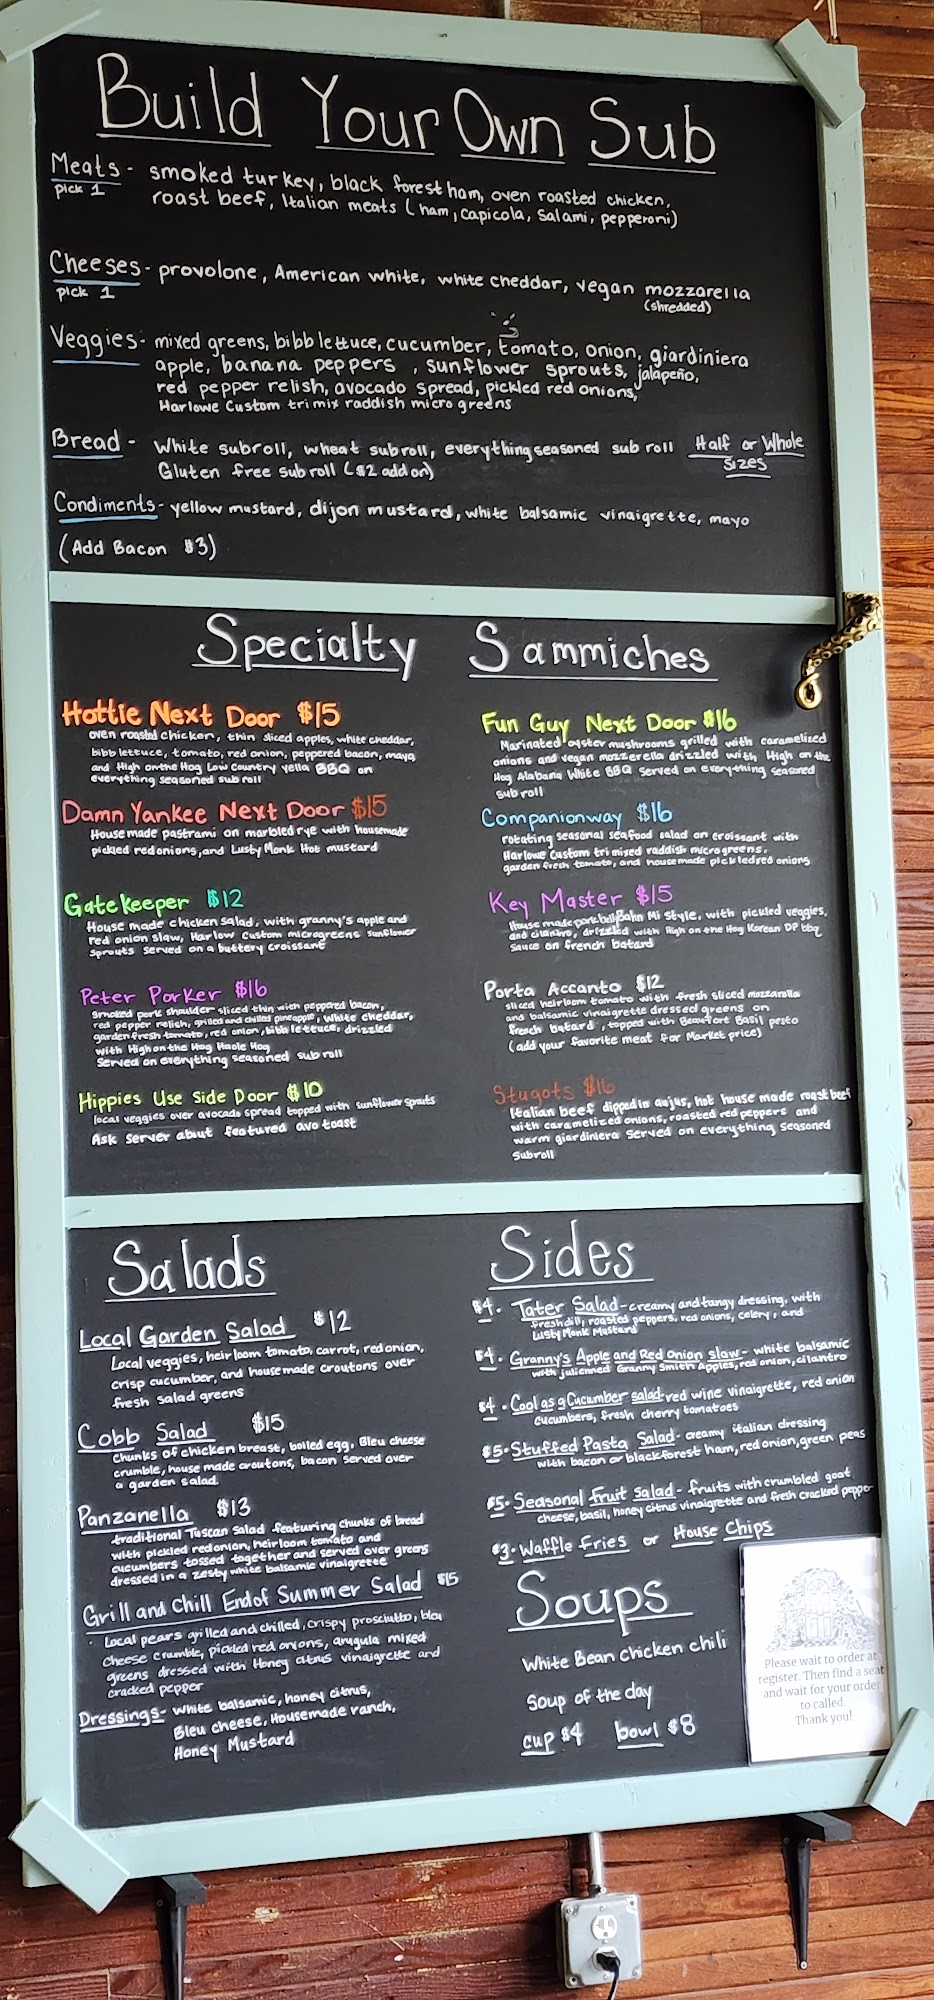 Build Your Own Sub
Meats - smoked turkey, black forest ham, oven roasted chicken,
pick 1 roast beef, Italian meats (ham, capicola, salami, pepperoni)
Cheeses - provolone, American white, white cheddar, vegan mozzarella
pick 1 (shredded)
Veggies - mixed greens, bibb lettuce, cucumber, tomato, onion, giardiniera
apple, banana peppers, sunflower sprouts, jalapeño,
red pepper relish, avocado spread, pickled red onions,
Harlowe Custom tri mix raddish micro greens
Bread - White subroll, wheat subroll, everything seasoned sub roll Half or Whole
Gluten free sub roll ($2 add on) Sizes
Condiments - yellow mustard, dijon mustard, white balsamic vinaigrette, mayo
(Add Bacon $3)
Specialty Sammiches
Hottie Next Door $15
oven roasted chicken, thin sliced apples, white cheddar,
bibb lettuce, tomato, red onion, peppered bacon, mayo,
and High on the Hog Low Country yella BBQ on
everything seasoned sub roll
Damn Yankee Next Door $15
House made pastrami on marbled rye with housemade
pickled red onions, and Lusty Monk Hot mustard
Gatekeeper $12
House made chicken salad, with granny's apple and
red onion slaw, Harlow Custom microgreens sunflower
sprouts served on a buttery croissant
Peter Porker $16
Smoked pork shoulder sliced thin with peppered bacon,
red pepper relish, grilled and chilled pineapple, white cheddar,
garden fresh tomato, red onion, bibb lettuce, drizzled
with High on the Hog Haole Hog
Served on everything seasoned sub roll
Hippies Use Side Door $10
local veggies over avocado spread topped with sunflower sprouts
Ask Server about featured avo toast
Fun Guy Next Door $16
Marinated oyster mushrooms grilled with caramelized
onions and vegan mozzerella drizzled with High on the
Hog Alabama White BBQ Served on everything seasoned
sub roll
Companionway $16
rotating seasonal seafood salad on croissant with
Harlowe Custom tri mixed raddish microgreens,
garden fresh tomato, and housemade pickled red onions
Key Master $15
House made pork belly Bahn Mi Style, with pickled veggies,
and cilantro, drizzled with High on the Hog Korean DP bbq
Sauce on french batard
Porta Accanto $12
sliced heirloom tomato with fresh sliced mozzarella
and balsamic vinaigrette dressed greens on
french batard, topped with Beaufort Basil pesto
(add your favorite meat for Market price)
Stugots $16
Italian beef dipped in aujus, hot house made roast beef
with caramelized onions, roasted red peppers and
warm giardiniera served on everything seasoned
subroll
Salads
Local Garden Salad $12
Local veggies, heirloom tomato, carrot, red onion,
crisp cucumber, and housemade croutons over
fresh salad greens
Cobb Salad $15
Chunks of chicken breast, boiled egg, Bleu cheese
crumble, house made croutons, bacon served over
a garden salad.
Panzanella $13
traditional Tuscan Salad featuring chunks of bread
with pickled red onion, heirloom tomato and
cucumbers tossed together and served over greens
dressed in a zesty white balsamic vinaigrette
Grill and Chill End of Summer Salad $15
Local pears grilled and chilled, crispy prosciutto, bleu
cheese crumble, pickled red onions, arugula mixed
greens dressed with Honey citrus vinaigrette and
cracked pepper
Dressings - White balsamic, honey citrus,
Bleu cheese, Housemade ranch,
Honey Mustard
Sides
$4. Tater Salad - creamy and tangy dressing, with
fresh dill, roasted peppers, red onions, celery, and
Lusty Monk Mustard
$4. Granny's Apple and Red Onion slaw - white balsamic
with julienned Granny Smith Apples, red onion, cilantro
$4. Cool as a Cucumber salad - red wine vinaigrette, red onion
cucumbers, fresh cherry tomatoes
$5. Stuffed Pasta Salad - creamy italian dressing
with bacon or black forest ham, red onion, green peas
$5. Seasonal Fruit Salad - fruits with crumbled goat
cheese, basil, honey citrus vinaigrette and fresh cracked pepper
$3. Waffle Fries or House Chips
Soups
White Bean chicken chili
Soup of the day
cup $4 bowl $8
Please wait to order at
register. Then find a seat
and wait for your order
to called.
Thank you!